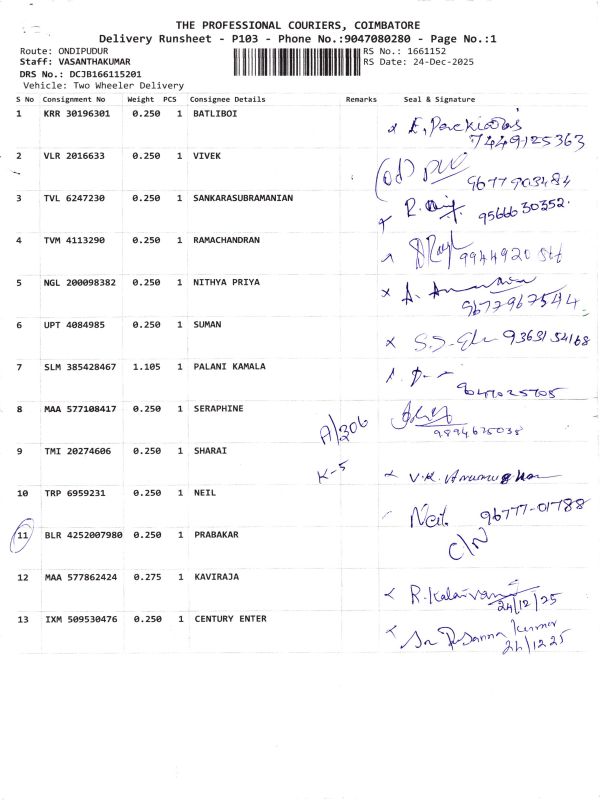 THE PROFESSIONAL COURIERS, COIMBATORE
Delivery Runsheet - P103 - Phone No.:9047080280 - Page No.:1
Route: ONDIPUDUR
RS No.: 1661152
Staff: VASANTHAKUMAR
RS Date: 24-Dec-2025
DRS No.: DCJB166115201
Vehicle: Two Wheeler Delivery
S No Consignment No Weight PCS Consignee Details Remarks Seal & Signature
1 KRR 30196301 0.250 1 BATLIBOI
7449125363
2 VLR 2016633 0.250 1 VIVEK
9677903484
3 TVL 6247230 0.250 1 SANKARASUBRAMANIAN
9566630352.
4 TVM 4113290 0.250 1 RAMACHANDRAN
5 NGL 200098382 0.250 1 NITHYA PRIYA
9677967544
6 UPT 4084985 0.250 1 SUMAN
7 SLM 385428467 1.105 1 PALANI KAMALA
8 MAA 577108417 0.250 1 SERAPHINE
A/306
9894675038
9 TMI 20274606 0.250 1 SHARAI
K-5
10 TRP 6959231 0.250 1 NEIL
Neil. 96777-01788
11 BLR 4252007980 0.250 1 PRABAKAR
C/N
12 MAA 577862424 0.275 1 KAVIRAJA
R. Kalaivani
24/12/25
13 IXM 509530476 0.250 1 CENTURY ENTER